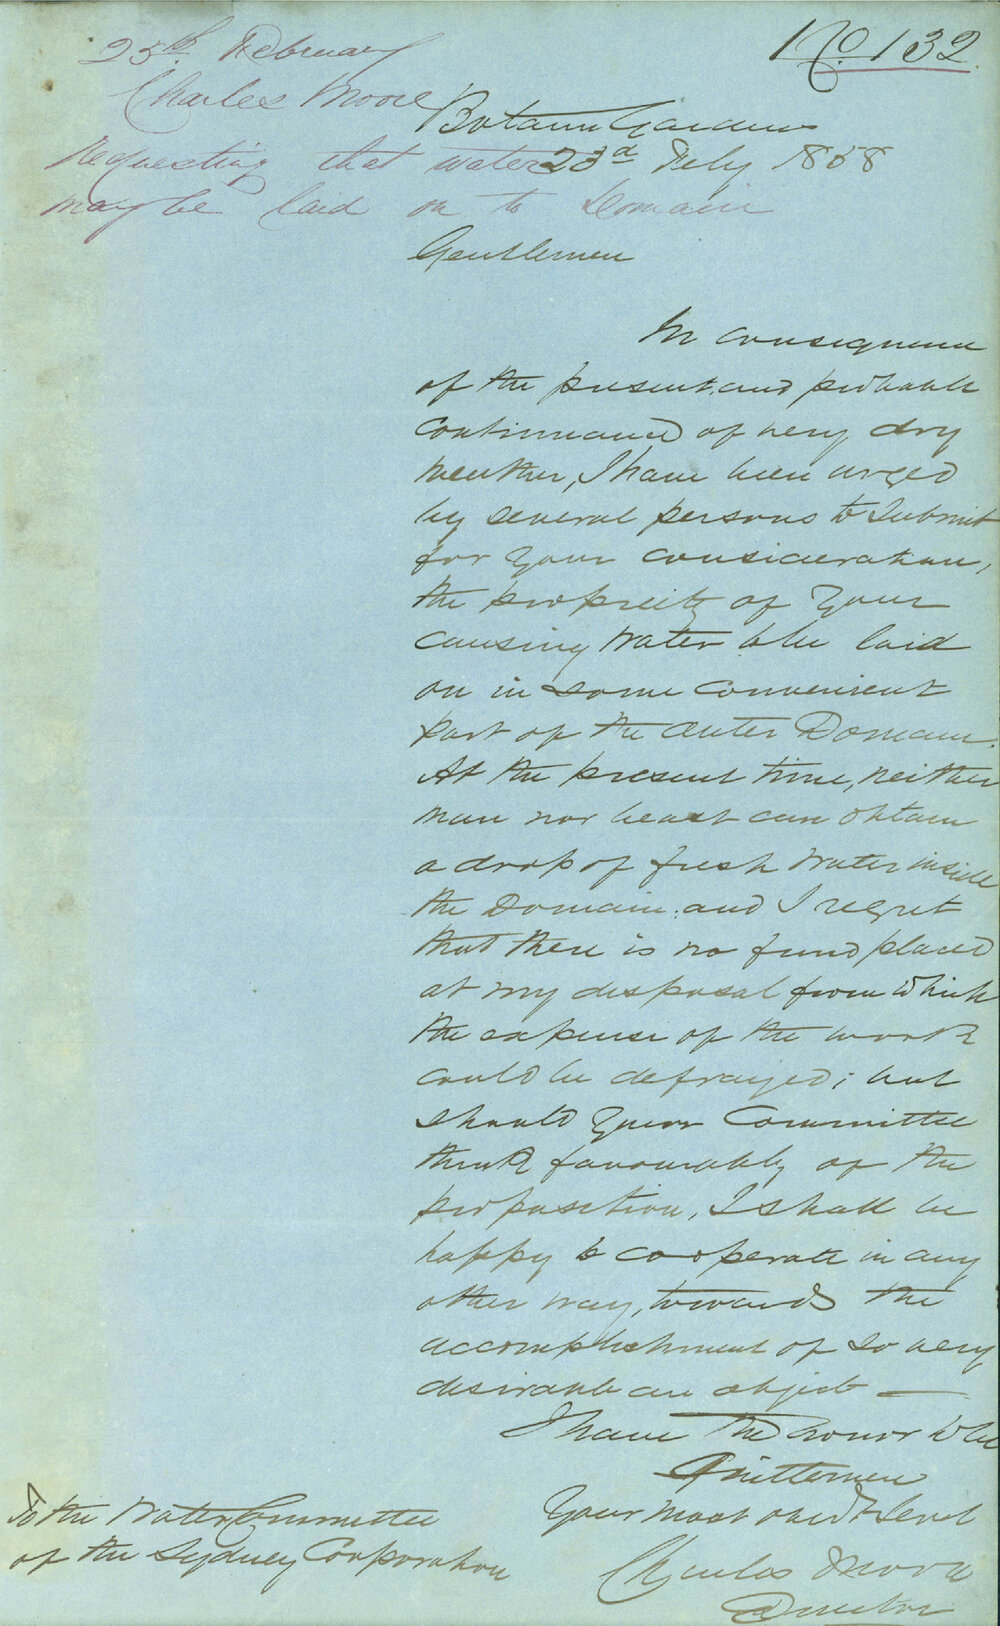 No 132
25th February
Charles Moore
requesting that water
may be laid on to Domain
Botanic Gardens
23d Feby 1858
Gentlemen
In consequence
of the present and probable
continuance of very dry
weather, I have been urged
by several persons to submit
for your consideration,
the propriety of your
causing water to be laid
on in some convenient
part of the outer Domain.
At the present time, neither
man nor beast can obtain
a drop of fresh water inside
the Domain: and I regret
that there is no fund placed
at my disposal from which
the expense of the work
could be defrayed; but
should your Committee
think favourably of the
proposition, I shall be
happy to cooperate in any
other way, towards the
accomplishment of so very
desirable an object —
I have the honor to be
Gentlemen
Your most obedt Servt
Charles Moore
Director
To the Water Committee
of the Sydney Corporation